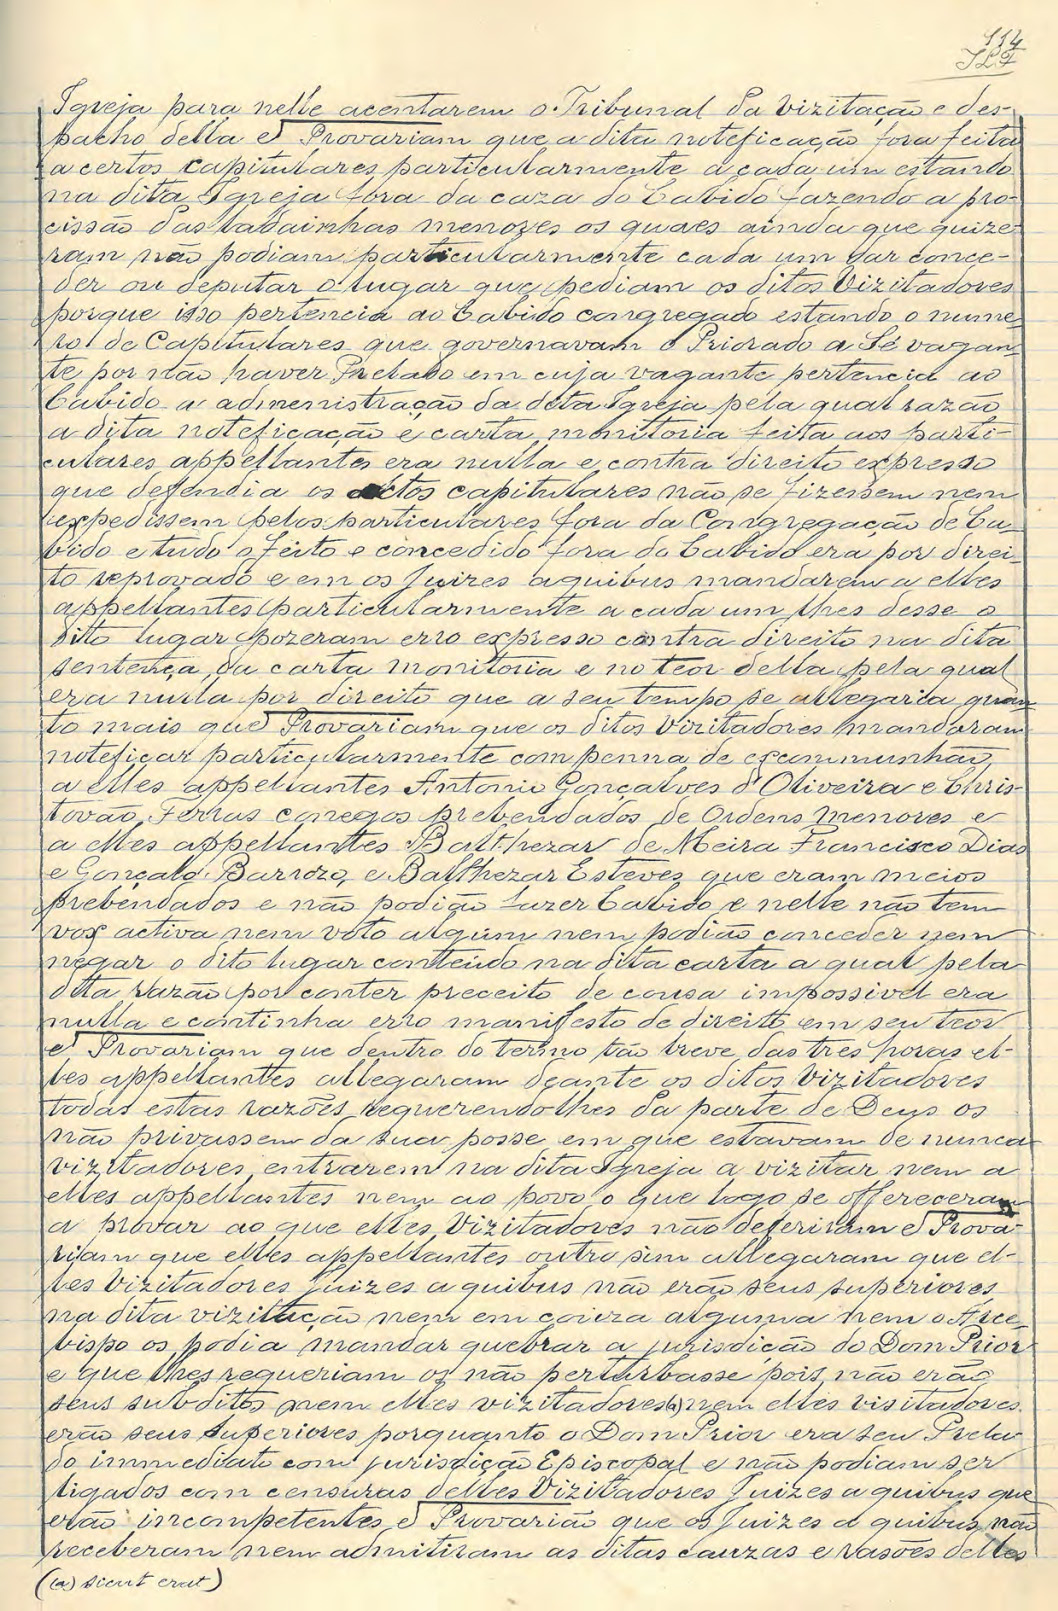 114
Igreja para nelle acentarem o Tribunal da Vizitação e des-
pacho della e Provariam que a dita noteficação fora feita
a certos capitulares particularmente a cada um estando
na dita Igreja fora da caza do Cabido fazendo a pro-
cissão das ladainhas menores os quaes ainda que quize-
ram não podiam particularmente cada um dar conce-
der ou deputar o lugar que pediam os ditos Vizitadores
porque isso pertencia ao Cabido congregado estando o nume-
ro de Capitulares que governavam o Priorado a Sé vagan-
te por não haver Prelado em cuja vagante pertencia ao
Cabido a admenistração da dita Igreja pela qual razão
a dita noteficação e carta monitoria feita aos parti-
culares appellantes era nulla e contra direito expresso
que defendia os actos capitulares não se fizessem nem
expedissem pelos particulares fora da Congregação de Ca-
bido e tudo o feito e concedido fora do Cabido era por direi-
to reprovado e em os Juizes aquibus mandarem a elles
appellantes particularmente a cada um lhes desse o
dito lugar pozeram erro expresso contra direito na dita
sentença ou carta monitoria e no teor della pela qual
era nulla por direito que a seu tempo se allegaria quan-
to mais que Provariam que os ditos Vizitadores mandaram
noteficar particularmente com penna de excommunhão
a elles appellantes Antonio Gonçalves d'Oliveira e Chris-
tovão Ferras conegos prebendados de Ordens Menores e
a elles appellantes Balthezar de Meira Francisco Dias
e Gonçalo Barrozo, e Balthezar Esteves que eram meios
prebendados e não podião fazer Cabido e nelle não tem
vox activa nem voto algum nem podião conceder nem
negar o dito lugar conteudo na dita carta a qual pela
dita razão por conter preceito de cousa impossivel era
nulla e continha erro manifesto de direito em seu teor
e Provariam que dentro do termo tão breve das tres horas el-
les appellantes allegaram deante os ditos Vizitadores
todas estas razões requerendolhes da parte de Deus os
não privassem da sua posse em que estavam de nunca
vizitadores entrarem na dita Igreja a vizitar nem a
elles appellantes nem ao povo o que logo se offereceram
a provar ao que elles Vizitadores não deferiram e Prova-
riam que elles appellantes outro sim allegaram que el-
les Vizitadores Juizes a quibus não erão seus superiores
na dita vizitação nem em coiza alguma nem o Arce-
bispo os podia mandar quebrar a jurisdição do Dom Prior
e que lhes requeriam os não perturbasse pois não erão
seus subditos nem elles vizitadores (a) nem elles visitadores
erão seus superiores porquanto o Dom Prior era seu Prela-
do immediato com jurisdição Episcopal e não podiam ser
ligados com censuras delles Vizitadores Juizes a quibus que
erão incompetentes e Provarião que os Juizes a quibus não
receberam nem admitiram as ditas cauzas e rasões delles
((a) sicut erat)